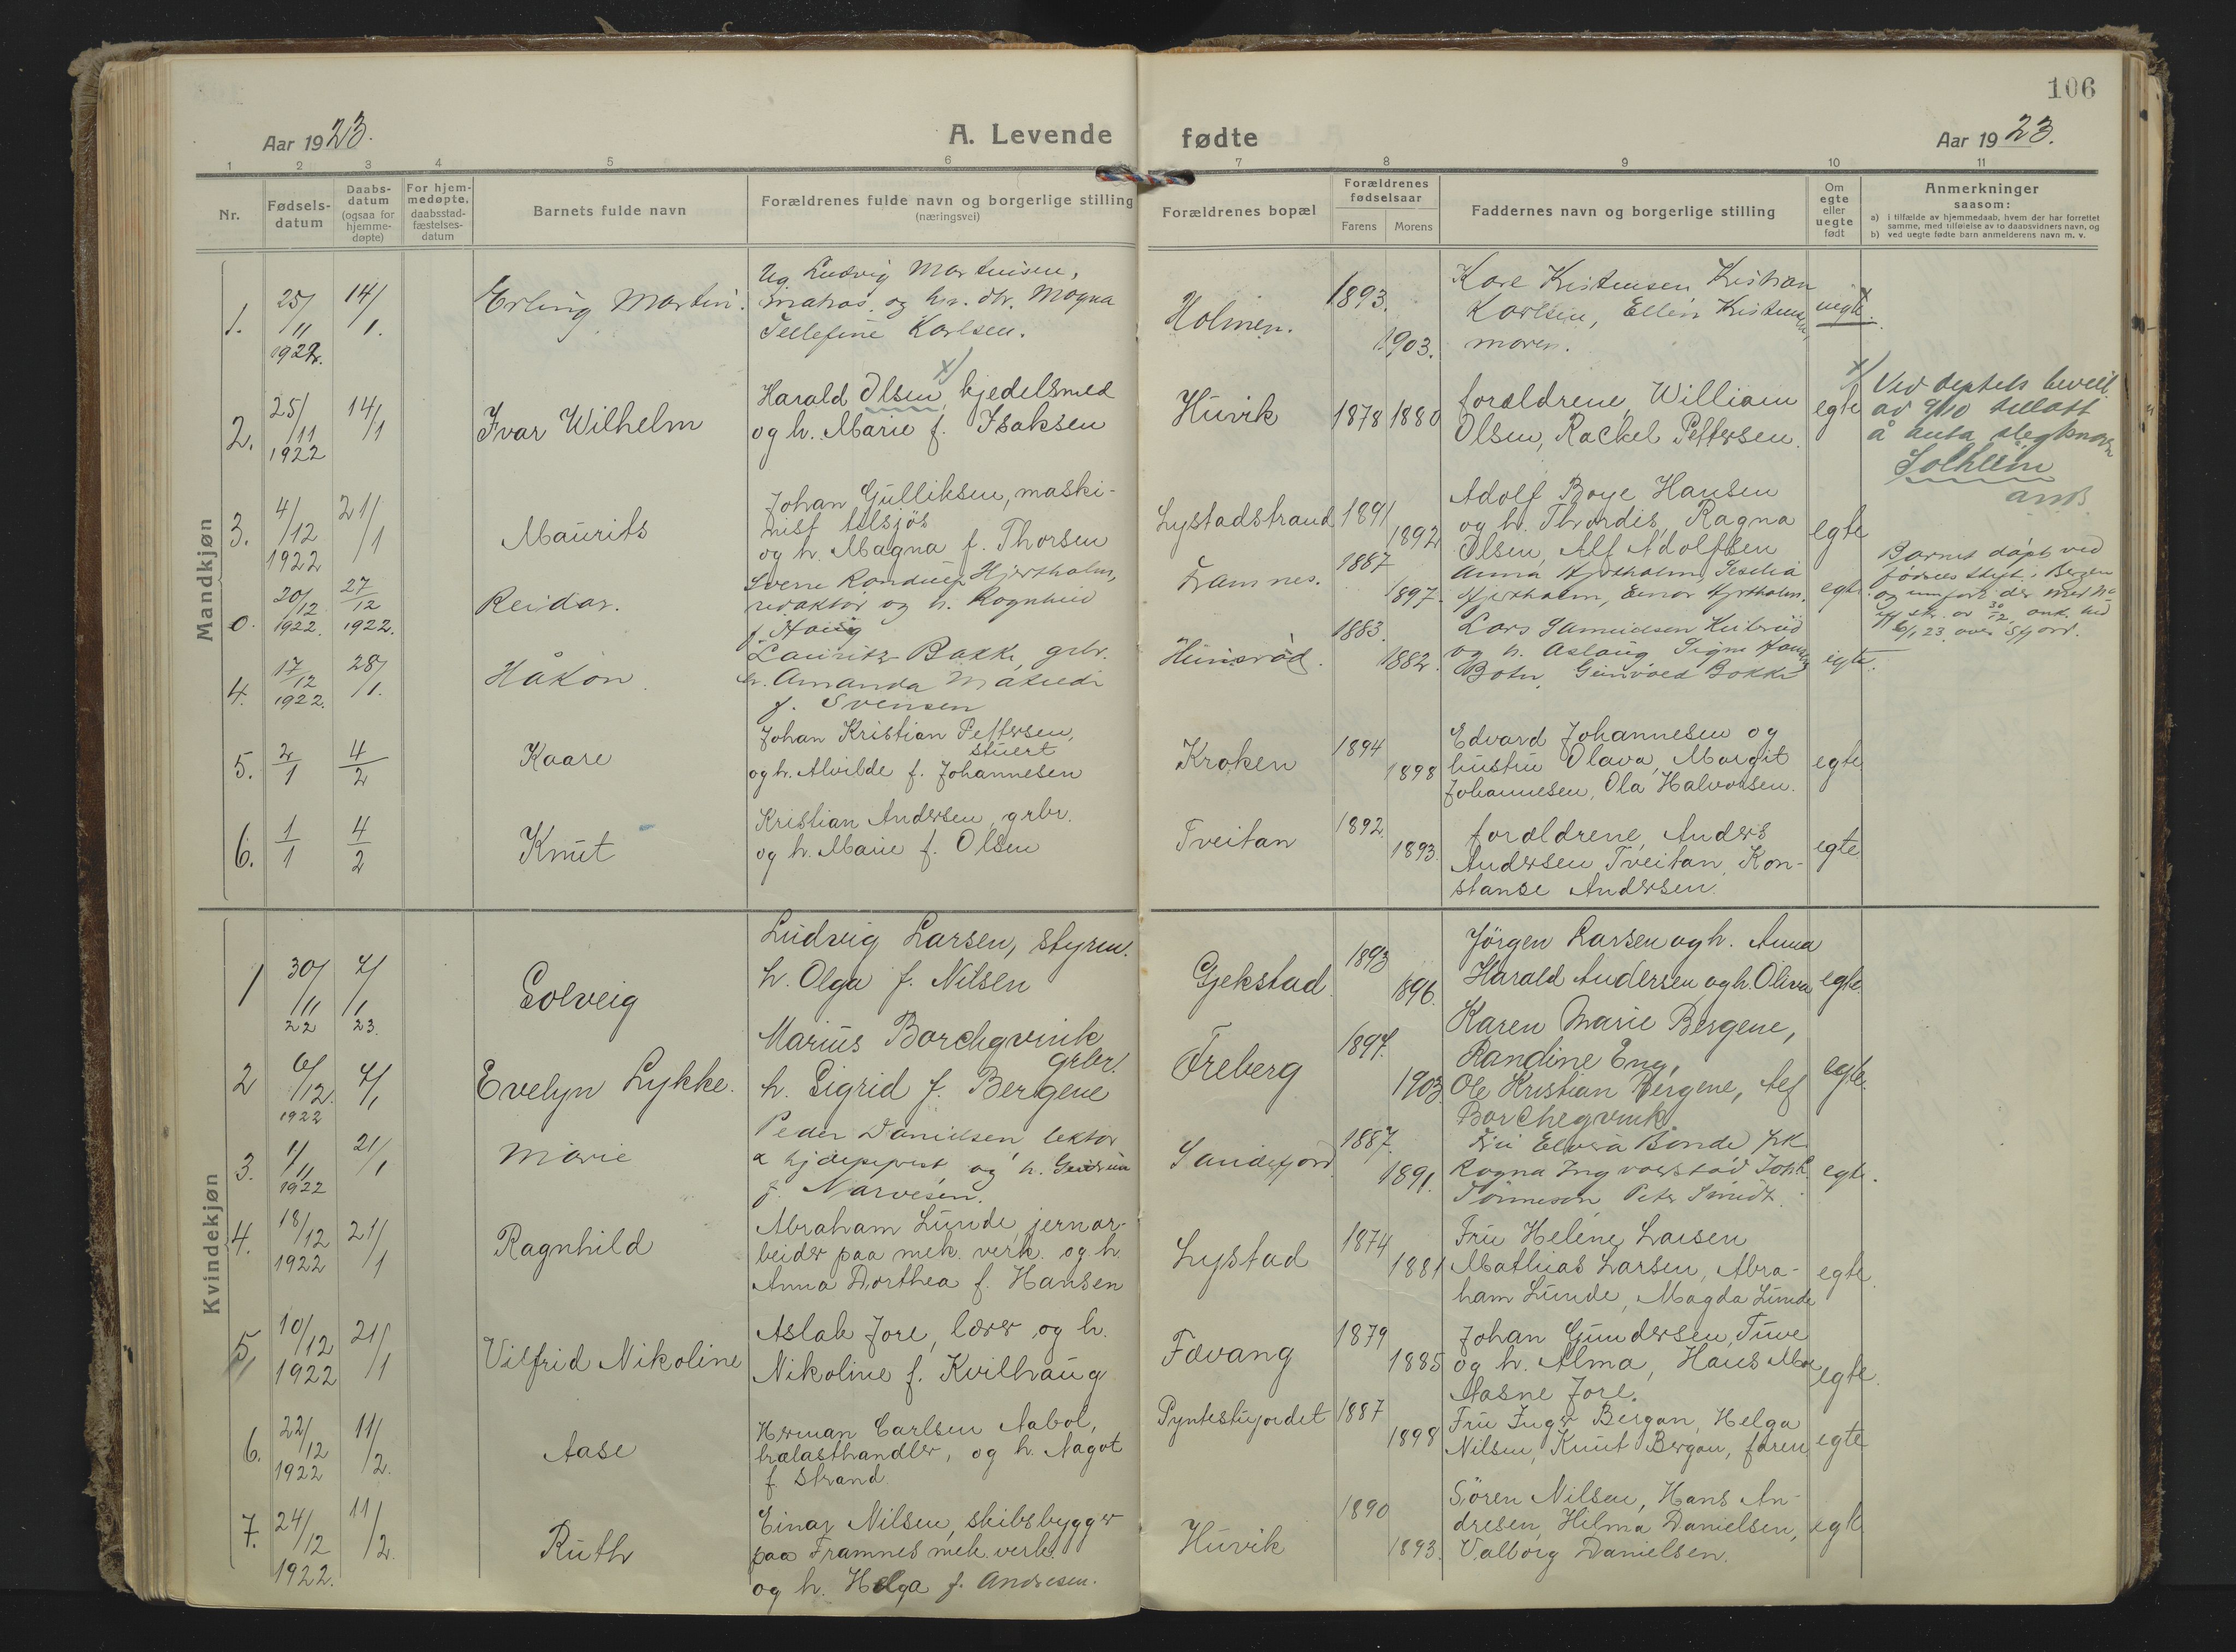 106
Aar 1923.
A. Levende
fødte
Aar 1923.
1 2 3 4 5 6 7 8 9 10 11
Nr.
Fødsels-
datum
Daabs-
datum
(ogsaa for
hjemme-
døpte)
For hjem-
medøpte,
daabsstad-
fæstelses-
datum
Barnets fulde navn
Forældrenes fulde navn og borgerlige stilling
(næringsvei)
Forældrenes bopæl
Forældrenes
fødselsaar
Farens Morens
Faddernes navn og borgerlige stilling
Om
egte
eller
uegte
født
Anmerkninger
saasom:
a) i tilfælde av hjemmedaab, hvem der har forrettet
samme, med tilføielse av to daabsvidners navn, og
b) ved uegte fødte barn anmelderens navn m. v.
Mandkjøn
1. 25/11 1922. 14/1.
Erling Martin.
Ug. Ludvig Martinsen,
matros og Magna
Tellefine Karlsen.
Holmen.
1893. 1903.
Kare Kristensen Kristian
Karlsen, Ellen Kristensen,
moren.
uegte.
2. 25/11 1922 14/1
Ivar Wilhelm
x)
Harald Olsen, kjedelsmed
og h. Marie f. Isaksen
Huvik
1878 1880
forældrene, William
Olsen, Rachel Pettersen.
egte
x) Ved
av tillatt
å anta slegtsnavn
Solheim
3. 4/12 1922 21/1
Maurits
Johan Gulliksen, maski-
nist tilsjøs
og h. Magna f. Thorsen
Lystadstrand
1891 1892
Adolf Boye Hansen
og h. Thordis, Ragna
Olsen, Alf Adolfsen
egte
0. 20/12 1922. 27/12 1922.
Reidar.
Hjertholm,
redaktør og h. Ragnhild
f. Haug
Framnes.
1887 1897.
Anna Hjertholm,
Hjertholm, Einar Hjertholm.
egte.
Barnet døpt ved
fødselsstift. i Bergen
og
4. 17/12 1922. 28/1.
Håkon
Lauritz Bakke, grbr.
h. Amanda Matilde
f. Svensen
Hunsrød.
1883. 1882.
Lars
og h. Aslaug Signe
Gunvald Bakke
egte.
5. 2/1 4/2
Kaare
Johan Kristian Pettersen,
stuert
og h. Alvilde f. Johannesen
Kroken
1894 1898
Edvard Johannesen og
hustru Olava, Margit
Johannesen, Ola Halvorsen.
egte
6. 1/1 4/2
Knut
Kristian Andersen, grbr.
og h. Marie f. Olsen
Tveitan
1892. 1893.
forældrene, Anders
Andersen Tveitan, Kon-
stanse Andersen.
egte
Kvindekjøn
1 30/11 22 7/1 23.
Solveig
Ludvig Larsen, styrm.
h. Olga f. Nilsen
Gjekstad.
1893 1896.
Jörgen Larsen og h. Anna
Harald Andersen og h. Oliva
egte.
2 6/12. 1922 7/1
Evelyn Lykke.
Marius Borchgrvink
grbr.
h. Sigrid f. Bergene
Freberg
1897. 1903.
Karen Marie Bergene,
Randine Eng,
Ole Kristian Bergene, Alf
Borchegrvink
egte.
3. 1/11 1922 21/1
Marie
Peder Danielsen lektor
& hjælpeprest og h. Gudrun
f. Narvesen.
Sandefjord
1887. 1891.
Fru Elvera Bonde, frk.
Ragna
Tönneson, Peter Smidt.
egte.
4. 18/12 1922 21/1
Ragnhild
Abraham Lunde, jernar-
beider paa mek. verk. og h.
Anna Dorthea f. Hansen
Lystad
1874 1881
Fru Helene Larsen
Mathias Larsen, Abra-
ham Lunde, Magda Lunde
egte.
5. 10/12 1922 21/1
Vilfrid Nikoline
Aslak Jore, lærer og h.
Nikoline f. Kvilhaug
Fevang
1879 1885
Johan Gundersen Tuve
og h. Alma, Hans Moe,
Aasne Jore.
egte.
6. 22/12 1922 11/2.
Aase
Herman Carlsen Aabol,
trælasthandler, og h. Aagot
f. Strand
Pyntestujordet
1887 1898
Fru Inger Bergan, Helga
Nilsen, Knut Bergan, faren
egte
7. 24/12 1922. 11/2.
Ruth
Einar Nilsen, skibsbygger
paa Framnes mek. verk.
og h. Helga f. Andresen.
Huvik
1890 1893.
Sören Nilsen, Hans An-
dresen, Hilma Danielsen,
Valborg Danielsen.
egte